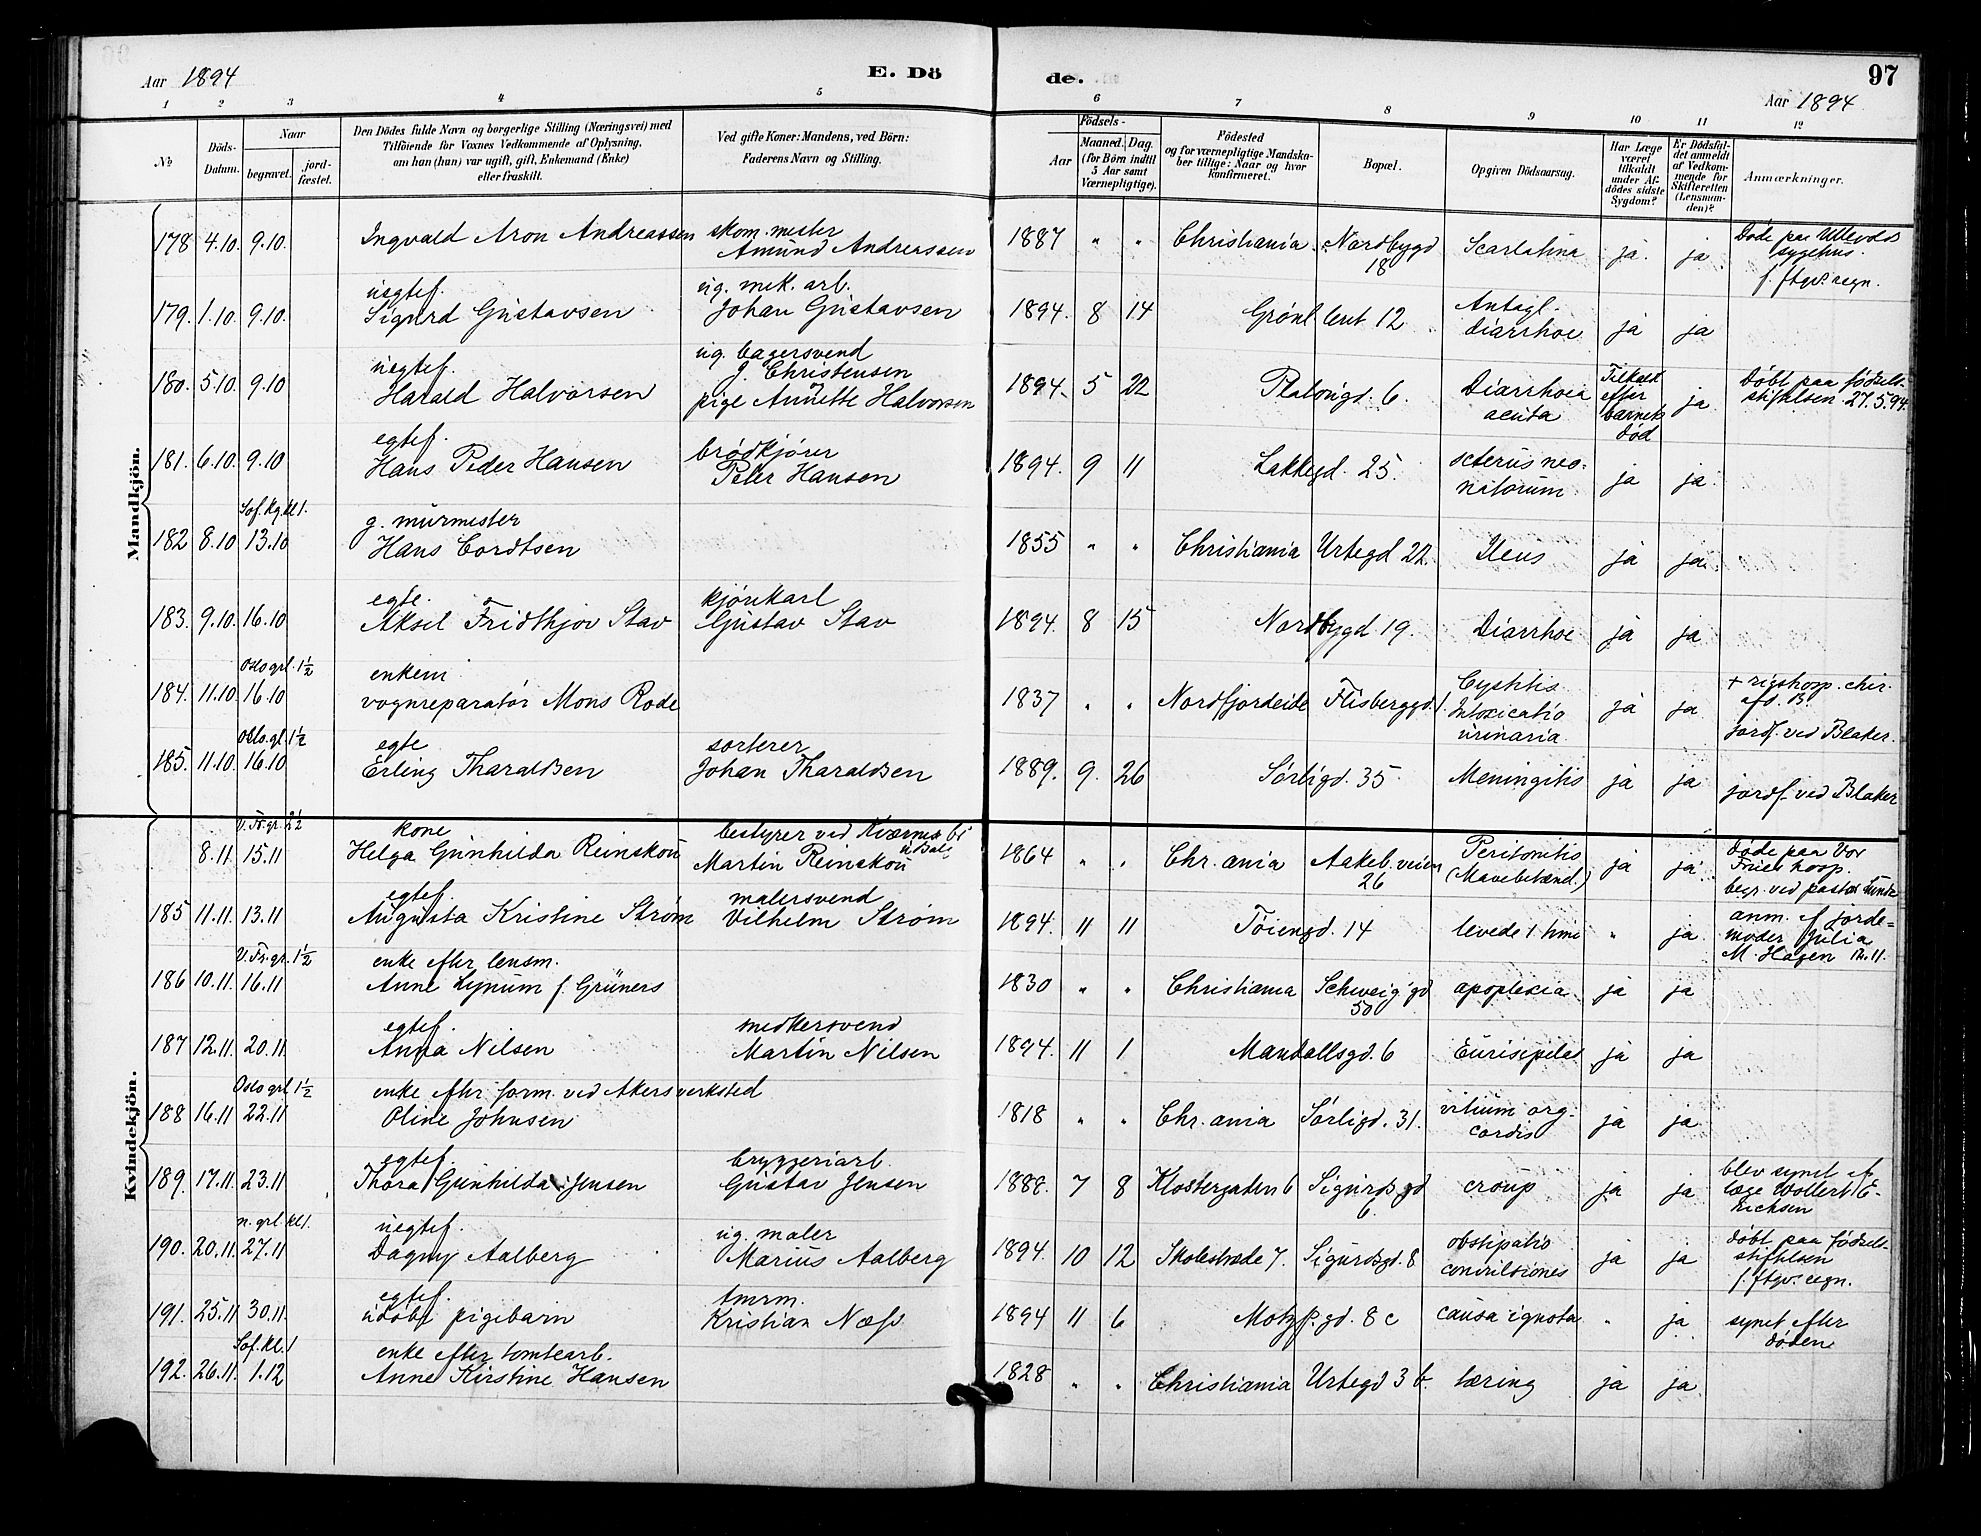 Aar 1894
E. Dö
de.
97
Aar 1894
1 2 3 4 5 6 7 8 9 10 11 12
№
Döds-
Datum.
Naar
begravet.
jord-
fæstet.
Den Dödes fulde Navn og borgerlige Stilling (Næringsvei) med
Tilföiende for Voxnes Vedkommende af Oplysning,
om han (hun) var ugift, gift, Enkemand (Enke)
eller fraskilt.
Ved gifte Koner: Mandens, ved Börn:
Faderens Navn og Stilling.
Födsels-
Aar
Maaned.
Dag.
(for Börn indtil
5 Aar samt
Værnepligtige).
Födested
og for værnepligtige Mandska-
ber tillige: Naar og hvor
konfirmeret.
Bopæl.
Opgiven Dödsaarsag.
Har Læge
været
tilkaldt
under Af-
dödes sidste
Sygdom?
Er Dödsfal-
det anmeldt
af Vedkom-
mende for
Skifteretten
(Lensman-
den)?
Anmærkninger.
Mandkjön.
178 4.10. 9.10. Ingvald Aron Andreassen skom. mester
Amund Andreassen 1887 " " Christiania Nordbygd
18 Scarlatina ja. ja Døde paa Ullevolds
sygehus.
f. ftgv. regn.
179. 1.10. 9.10. uegtef.
Sigurd Gustavsen ug. mek. arb.
Johan Gustavsen 1894. 8 14 Grønl leret 12 Antagl.
diarrhoe ja ja
180. 5.10. 9.10 uegtef.
Harald Halvorsen ug. bagersvend
J. Christensen
og
pige Annette Halvorsen 1894. 5 22 Platougd. 6. Diarrhoea
acuta Tilkaldt
efter
barnets
død ja Døbt paa fødsels-
stiftelsen 27.5.94.
181. 6.10. 9.10 egtef.
Hans Peder Hansen brødkjører
Peter Hansen 1894. 9 11 Lakkegd. 25. icterus neo-
natorum ja ja
182 8.10 Sof. kg. kl 1.
13.10 g. murmester
Hans Cordtsen 1855 " " Christiania Urtegd 22. Ileus ja ja
183. 9.10. 16.10 egte.
Aksel Fridthjov Stav kjørekarl
Gustav Stav 1894. 8 15 Nordbygd 19. Diarrhoe ja ja
184. 11.10 Oslo grl. 1½
16.10 enkem
vognreparatør Mons Rode 1837 " " Nordfjordeide Flisberggd. 1. Cystitis
Intoxicatio
urinaria ja ja + rigshosp. chir.
afd. B
jordf. ved Blaker.
185. 11.10. Oslo. gl. 1½
16.10 egte
Erling Tharaldsen sorterer
Johan Tharaldsen 1889. 9. 26 Sørligd. 35 Meningitis ja ja jordf. ved Blaker
Kvindekjön.
8.11. V. Fr. gr. 2½
15.11 kone
Helga Gunhilda Reinskou bestyrer ved Kværner
Martin Reinskou 1864 " " Chr.ania Aakeb. veien
26 Peritonitis
(Mavebetænd.) ja ja Døde paa Vor
Frues hosp.
begr. ved pastor
185 11.11. 13.11 egtef.
Augusta Kristine Strøm malersvend
Vilhelm Strøm 1894. 11 11 Tøiengd. 14 levede 1 time " ja anm. af jorde-
moder Julia
M. Hagen 12.11.
186 10.11. V. Fr. gr. 1½
16.11 enke efter lensm.
Anne Lynum f. Grüners 1830 " " Christiania Schweig gd
50 apoplexia ja ja
187 12.11. 20.11. egtef.
Anna Nilsen snedkersvend
Martin Nilsen 1894. 11 1 Mandallsgd. 6 Eurisipelas ja ja
188 16.11 Oslo grl 1½
22.11 enke efter form. ved Akers verksted
Oline Johnsen 1818 " " Chr.ania Sørligd. 31. vitium org.
cordis ja ja
189. 17.11. 23.11 egtef.
Thora Gunhilda Jensen bryggeriarb.
Gustav Jensen 1888. 7 8 Klostergaden 6 Sigurds gd
6 croup ja ja blev synet af
læge Wollert E-
ricksen
190. 20.11. n. grl. kl 1.
27.11 uegtef.
Dagny Aalberg ug. maler
Marius Aalberg 1894. 10 12 Skolestræde 7. Sigurdsgd. 8 obstipatio
convulsiones ja ja døbt paa fødsels-
stiftelsen
f. ftgv. regn.
191. 25.11 30.11. egtef.
udøbt pigebarn tmrm.
Kristian Næss 1894 11 6 Motzf. gd. 8 c causa ignota " ja synet efter
døden
192. 26.11. Sof. kl. 1
1.12 enke efter tomtearb.
Anne Kirstine Hansen 1828 " " Christiania Urtegd 3 b. tæring ja ja.